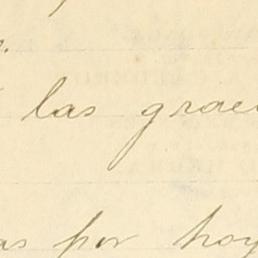 las grac
as por hoy